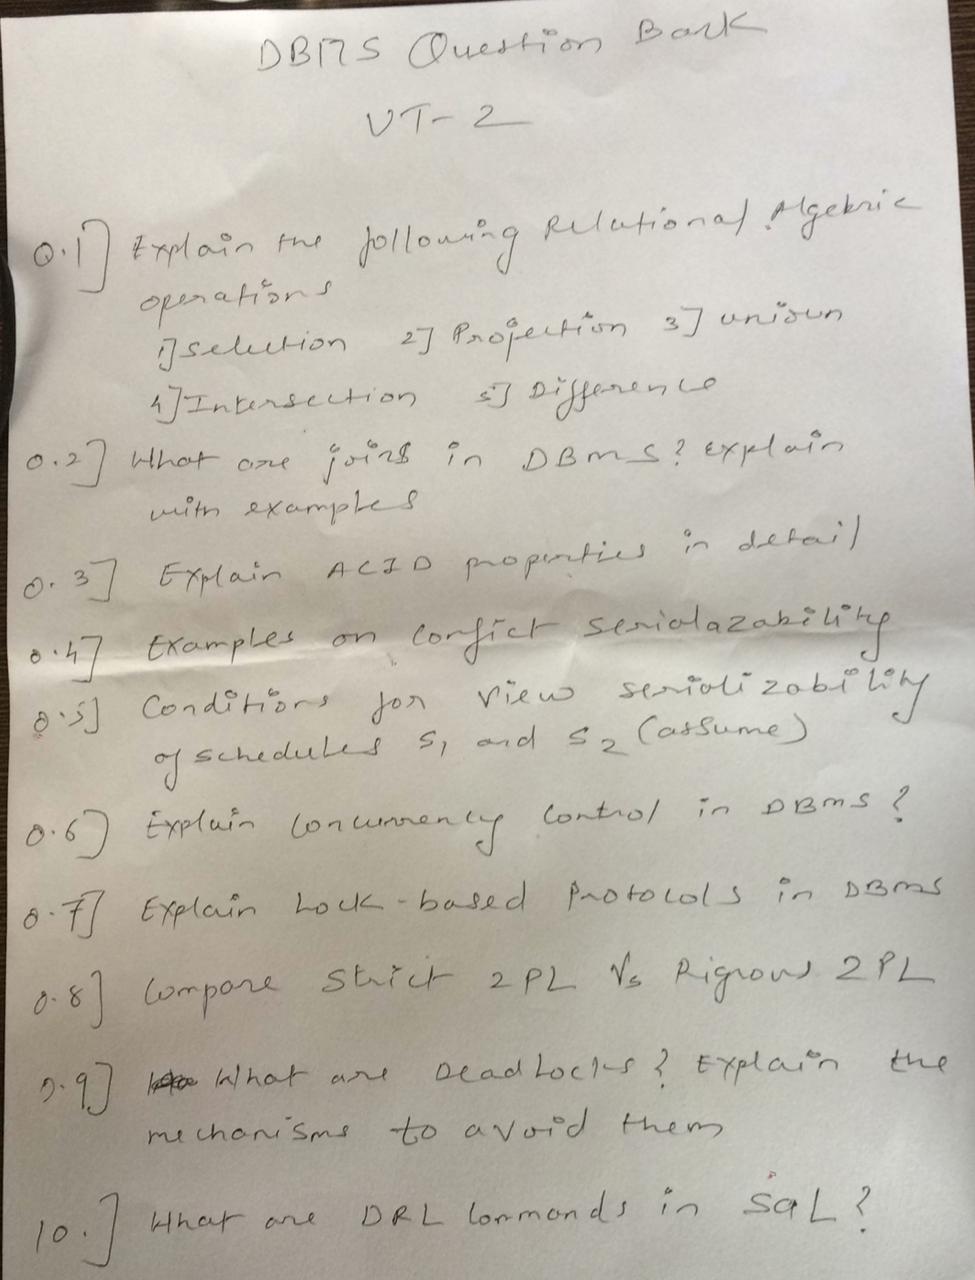 DBMS Question Bank
UT-2
Q.1] Explain the following Relational Algebric
operations
1] Selection 2] Projection 3] union
4] Intersection 5] Difference
Q.2] What are joins in DBMS? Explain
with examples
Q.3] Explain ACID properties in detail
Q.4] Examples on Conflict Serialazability
Q.5] Conditions for View serializability
of schedules S1 and S2 (assume)
Q.6] Explain Concurrency Control in DBMS?
Q.7] Explain Lock-based Protocols in DBMS
Q.8] Compare Strict 2PL Vs Rigrous 2PL
Q.9] What are DeadLocks? Explain the
mechanisms to avoid them
10.] What are DRL Commands in SQL?